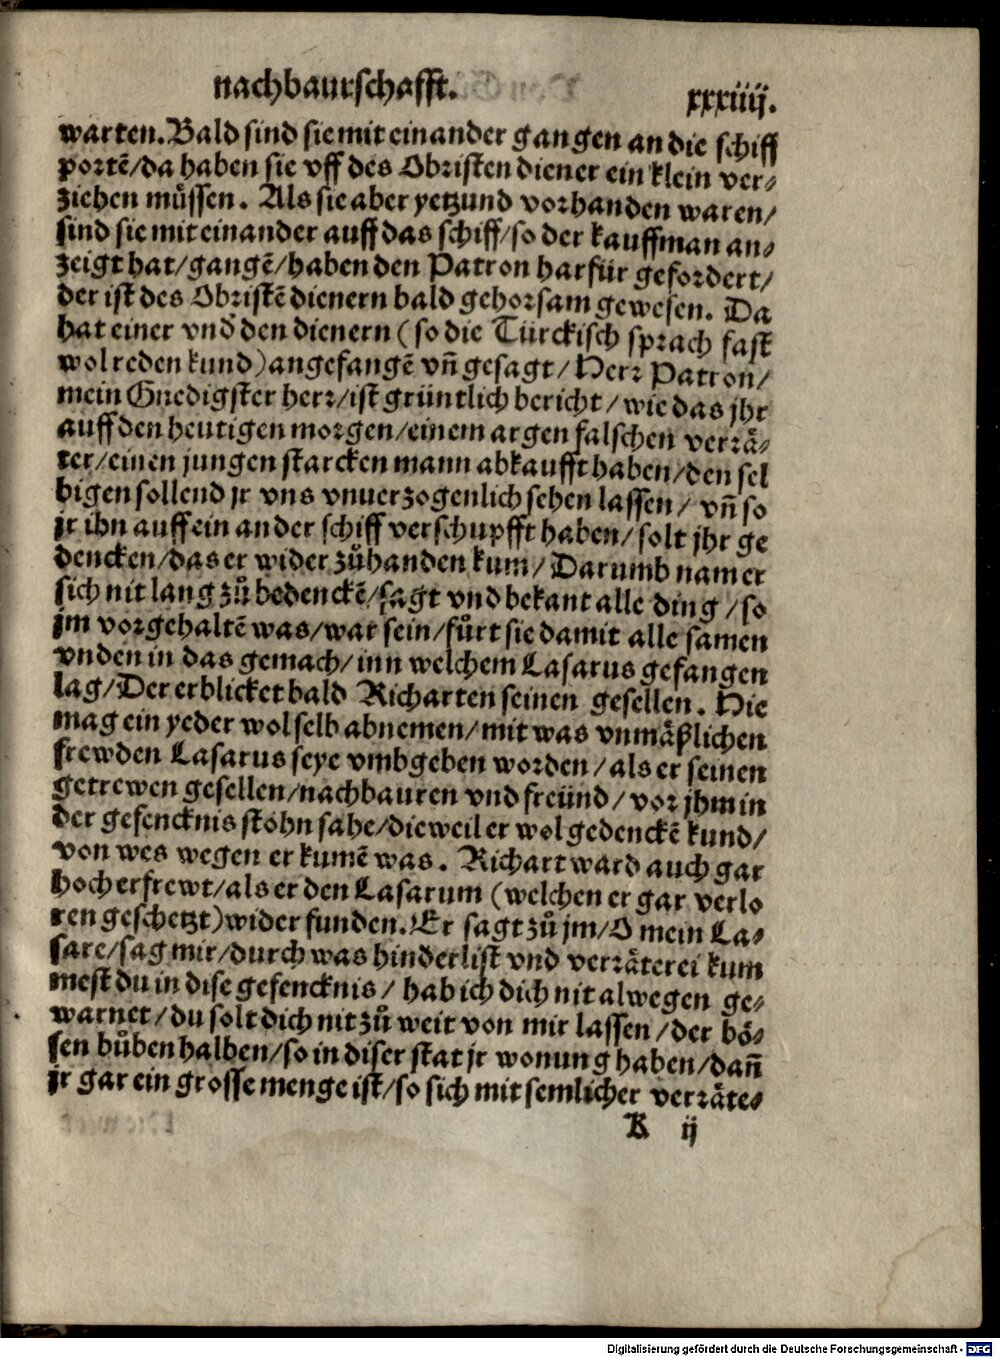 nachbaurschafft. xxxiiij.
warten. Bald sind sie mit einander gangen an die schiff
portẽ/da haben sie vff des Obristen diener ein klein ver⸗
ziehen můssen. Als sie aber yetzund vorhanden waren/
sind sie mit einander auff das schiff/so der kauffman an⸗
zeigt hat/gangẽ/haben den Patron harfür gefordert/
der ist des Obristẽ dienern bald gehorsam gewesen. Da
hat einer vnd den dienern (so die Türckisch sprach fast
wol reden kund) angefangẽ vñ gesagt/Herr Patron/
mein Gnedigster herr/ist grüntlich bericht/wie das jhr
auff den heutigen morgen/einem argen falschen verrä⸗
ter/einen jungen starcken mann abkaufft haben/den sel
bigen sollend jr vns vnuerzogenlich sehen lassen/vñ so
jr ihn auff ein ander schiff verschupfft haben/solt jhr ge
dencken/das er wider zůhanden kum/Darumb nam er
sich nit lang zů bedenckẽ/sagt vnd bekant alle ding/so
jm vorgehaltẽ was/war sein/fůrt sie damit alle samen
vnden in das gemach/inn welchem Lasarus gefangen
lag/Der erblicket bald Richarten seinen gesellen. Hie
mag ein yeder wol selb abnemen/mit was vnmäßlichen
frewden Lasarus seye vmbgeben worden/als er seinen
getrewen gesellen/nachbauren vnd freünd/vor jhm in
der gefencknis stohn sahe/dieweil er wol gedenckẽ kund/
von wes wegen er kumẽ was. Richart ward auch gar
hoch erfrewt/als er den Lasarum (welchen er gar verlo
ren geschetzt) wider funden. Er sagt zů jm/O mein La⸗
sare/sag mir/durch was hinderlist vnd verräterei kum
mest du in dise gefencknis/hab ich dich nit alwegen ge⸗
warnet/du solt dich nit zů weit von mir lassen/der bö⸗
sen bůben halben/so in diser stat jr wonung haben/dañ
jr gar ein grosse menge ist/so sich mit semlicher verräte⸗
K ij
Digitalisierung gefördert durch die Deutsche Forschungsgemeinschaft - DFG